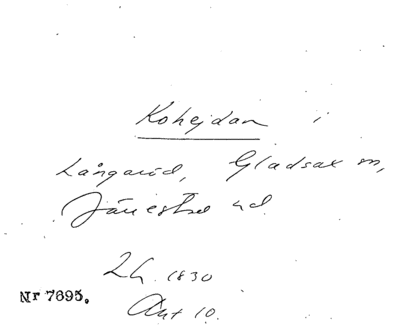 Kohejdan i
Långaröd, Gladsax sn,
Järrestad hd.
Lh. 1830
Akt 10.
Nr 7695.